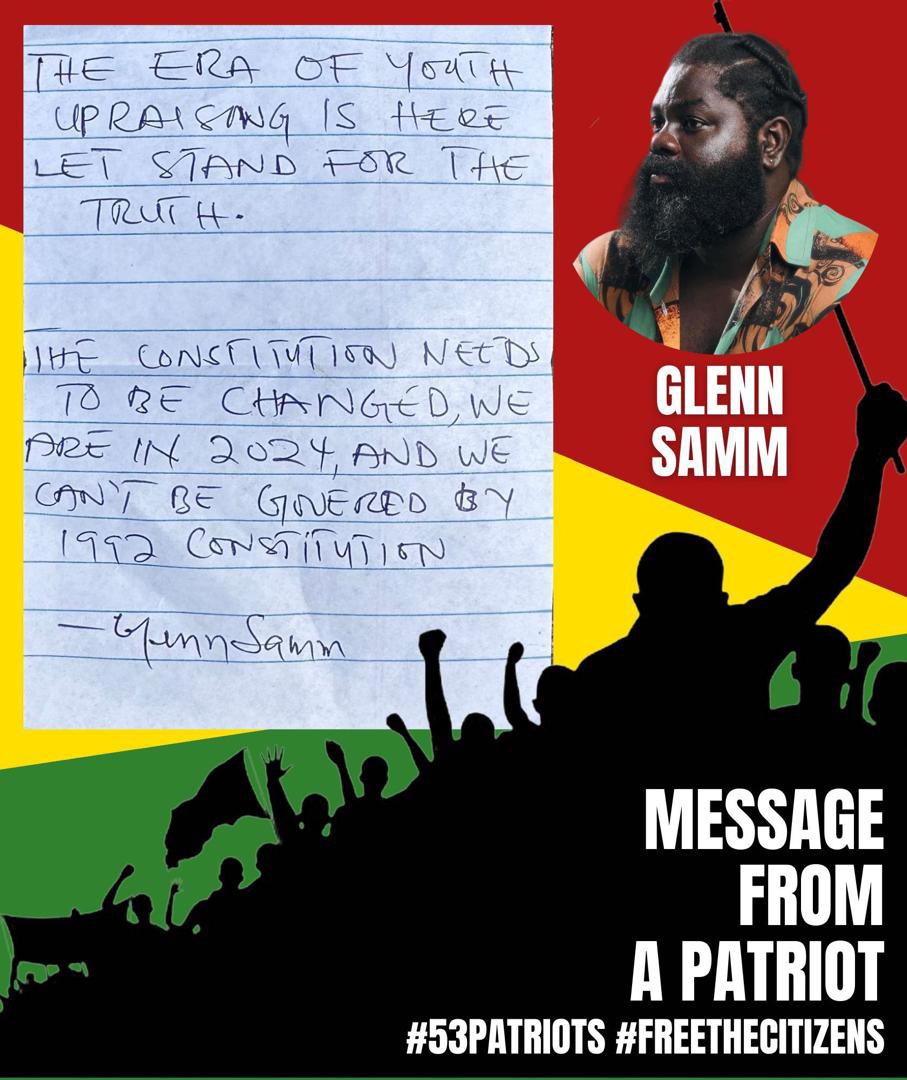 THE ERA OF YOUTH
UPRAISING IS HERE
LET STAND FOR THE
TRUTH.
THE CONSTITUTION NEEDS
TO BE CHANGED, WE
ARE IN 2024, AND WE
CAN'T BE GOVERED BY
1992 CONSTITUTION
—Glenn Samm
GLENN
SAMM
MESSAGE
FROM
A PATRIOT
#53PATRIOTS #FREETHECITIZENS